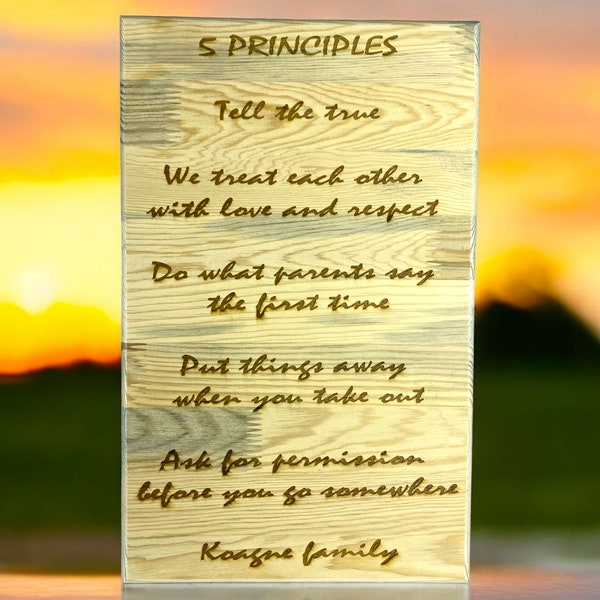 5 PRINCIPLES
Tell the true
We treat each other
with love and respect
Do what parents say
the first time
Put things away
when you take out
Ask for permission
before you go somewhere
Koagne family